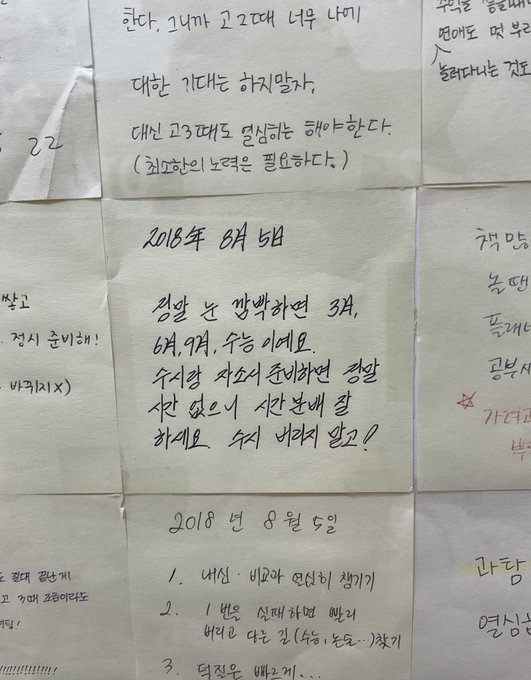 한다. 그니까 고2때 너무 나에
대한 기대는 하지말자.
대신 고3때도 열심히는 해야한다.
(최소한의 노력은 필요하다.)
22
쌓고
정시 준비해!
바꾸지X)
2018年 8月 5日
정말 눈 깜빡하면 3月,
6月, 9月, 수능이에요.
수시랑 자소서 준비하면 정말
시간 없으니 시간분배 잘
하세요. 수시 버리지 말고!
연애도 못
놀러다니는 것도
책 많
놀 땐
플래너
공부
2018년 8월 5일
1. 내신·비교과 열심히 챙기기
2. 1번을 실패하면 빨리
버리고 다른 길(수능, 논술...)찾기
3. 덕질은 빠르게...
절대 끝난게
고3때 조금이라도
과탐
열심